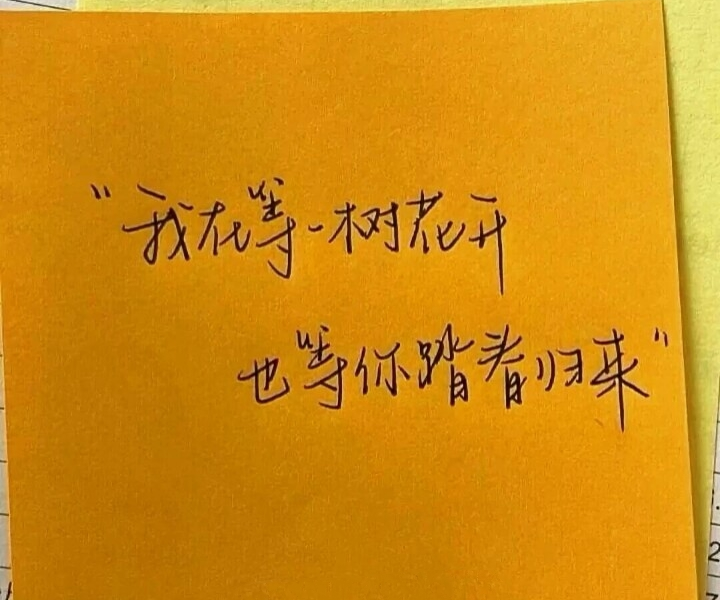 “我在等一树花开
也等你踏春归来”
2